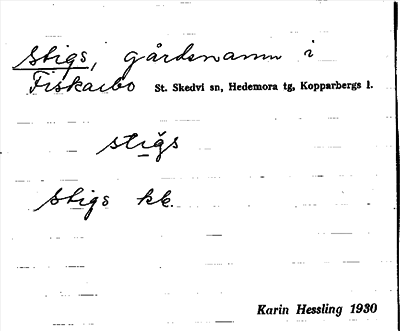 Stigs, gårdsnamn i
Fiskarbo St. Skedvi sn, Hedemora tg, Kopparbergs l.
stigs
Stigs kk.
Karin Hessling 1930